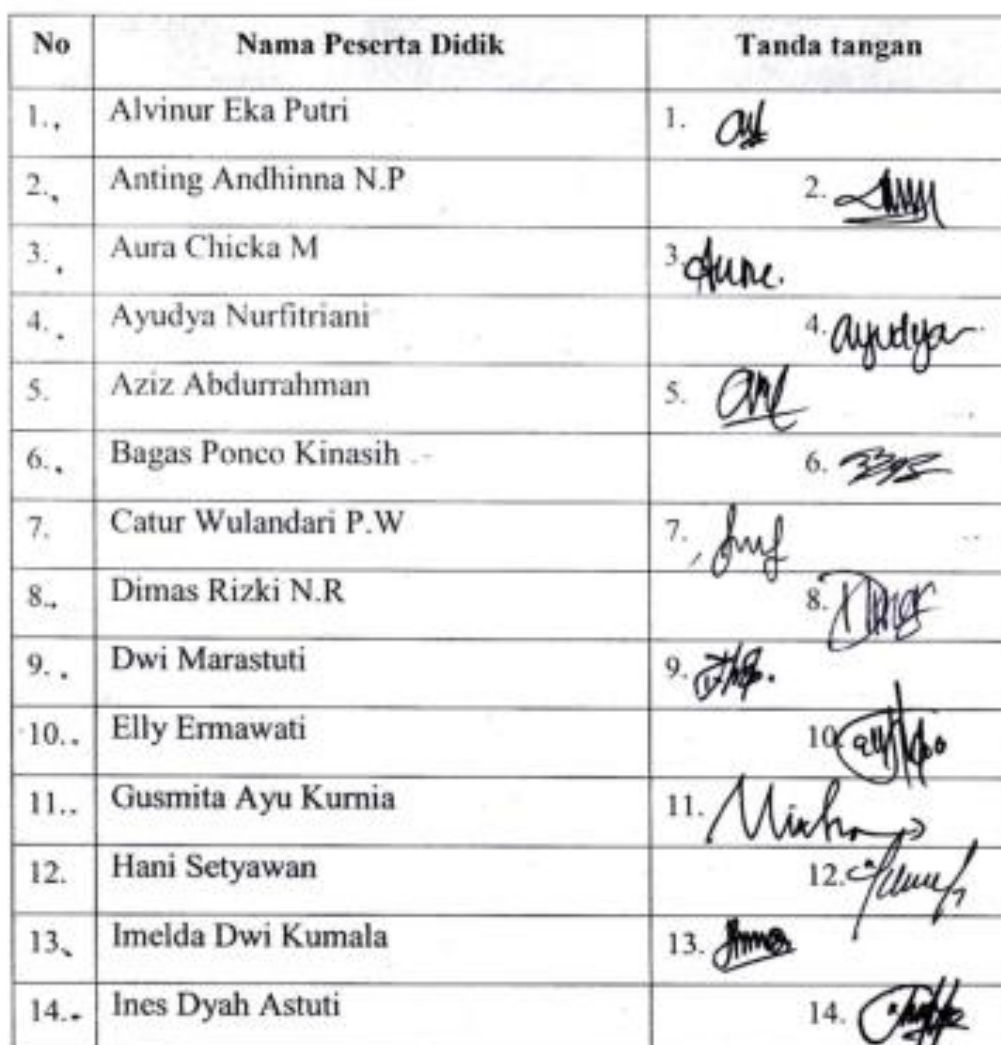 No Nama Peserta Didik Tanda tangan
1. Alvinur Eka Putri 1.
2. Anting Andhinna N.P 2.
3. Aura Chicka M 3.
4. Ayudya Nurfitriani 4. ayudya
5. Aziz Abdurrahman 5.
6. Bagas Ponco Kinasih 6.
7. Catur Wulandari P.W 7.
8. Dimas Rizki N.R 8.
9. Dwi Marastuti 9.
10. Elly Ermawati 10.
11. Gusmita Ayu Kurnia 11.
12. Hani Setyawan 12.
13. Imelda Dwi Kumala 13.
14. Ines Dyah Astuti 14.